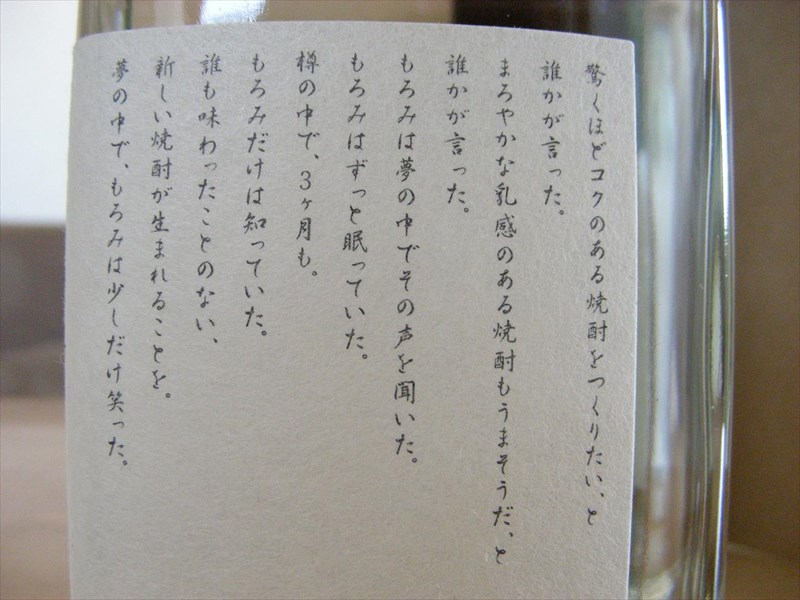 驚くほどコクのある焼酎をつくりたい、と
誰かが言った。
まろやかな乳感のある焼酎もうまそうだ、と
誰かが言った。
もろみは夢の中でその声を聞いた。
もろみはずっと眠っていた。
樽の中で、3ヶ月も。
もろみだけは知っていた。
誰も味わったことのない、
新しい焼酎が生まれることを。
夢の中で、もろみは少しだけ笑った。